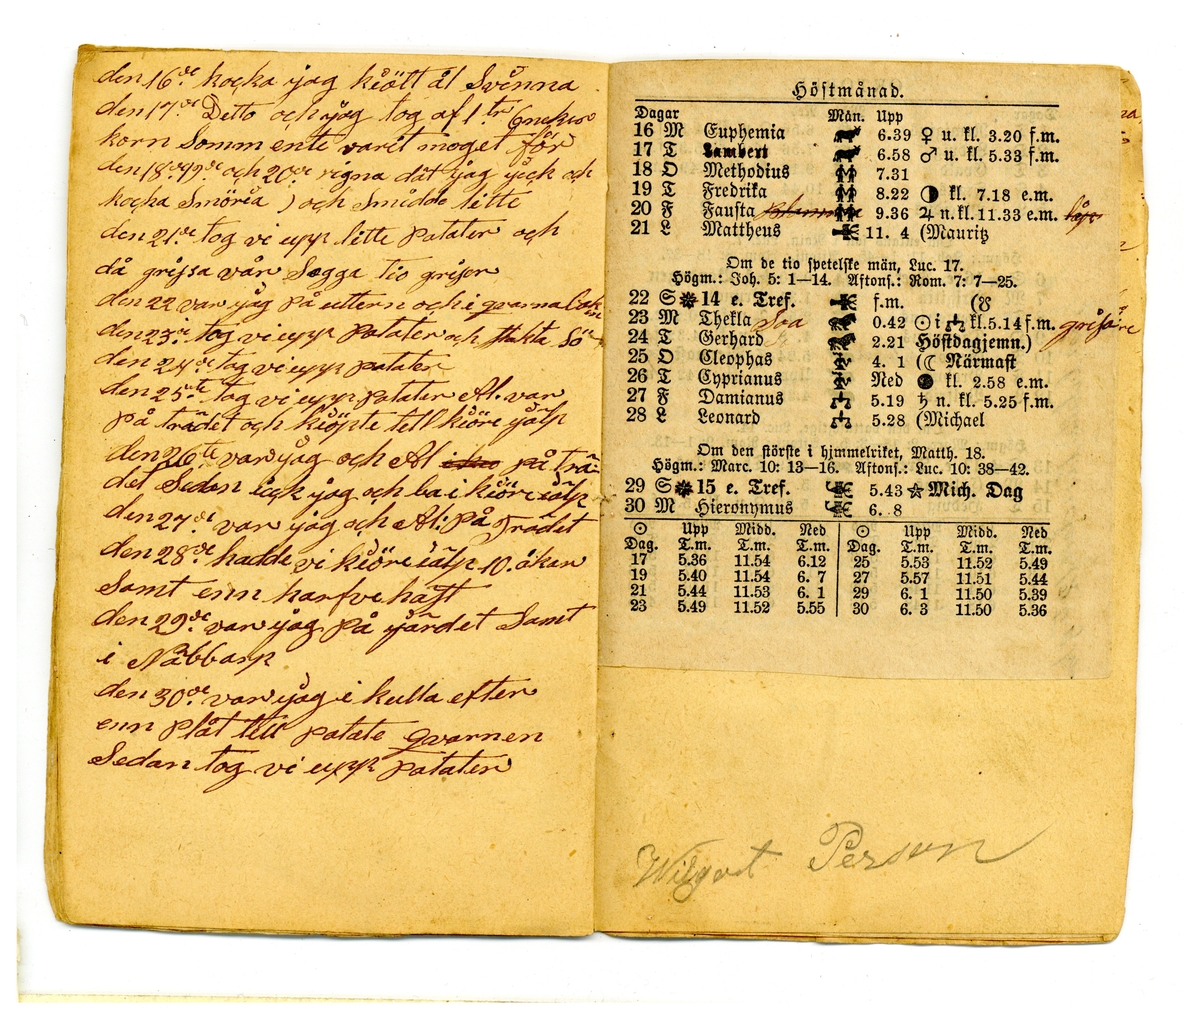 den 16de kocka jag kiött åt Svinna
den 17de Detto och jag tog af 1 tr
korn Somm ente varit moget för
den 18de 19de och 20de rigna dät jag gick och
kocka Smöria och Smidde litte
den 21de tog vi upp litte Patater och
då grissa vår Sogga tio grisor
den 22 var jag på uttern och i qvarna
den 23de tog vi upp Patater och
den 24de tog vi upp patater
den 25te tog vi upp Patater Al. var
På trädet och kiöpte tell kiöre
den 26te var jag och Al på trä-
det Sedan jag och i kiöre
den 27de var jag och Al: På Trädet
den 28de hadde vi kiöre 10. åkar
Samt enn harfve haft
den 29de var jag På Samt
i Näbbarp
den 30de var jag i kulla efter
enn Plåt tell patate qvarnen
Sedan tog vi upp Patater
Höstmånad.
Dagar Mån. Upp
16 M Euphemia 6.39 ♀ u. kl. 3.20 f.m.
17 T Lambert 6.58 ♂ u. kl. 5.33 f.m.
18 O Methodius 7.31
19 T Fredrika 8.22 ◑ kl. 7.18 e.m.
20 F Fausta 9.36 ♃ n. kl. 11.33 e.m.
21 L Mattheus 11. 4 (Mauritz
Om de tio spetelske män, Luc. 17.
Högm.: Joh. 5: 1—14. Aftons.: Rom. 7: 7—25.
22 S 14 e. Tref. f.m. (☋
23 M Thekla Soa 0.42 ☉ i ♎ kl. 5.14 f.m. grisare
24 T Gerhard 2.21 Höstdagjemn.)
25 O Cleophas 4. 1 (☾ Närmast
26 T Cyprianus Ned ● kl. 2.58 e.m.
27 F Damianus 5.19 ♄ n. kl. 5.25 f.m.
28 L Leonard 5.28 (Michael
Om den störste i himmelriket, Matth. 18.
Högm.: Marc. 10: 13—16. Aftons.: Luc. 10: 38—42.
29 S 15 e. Tref. 5.43 ☆ Mich. Dag
30 M Hieronymus 6. 8
☉ Upp Midd. Ned ☉ Upp Midd. Ned
Dag. T.m. T.m. T.m. Dag. T.m. T.m. T.m.
17 5.36 11.54 6.12 25 5.53 11.52 5.49
19 5.40 11.54 6. 7 27 5.57 11.51 5.44
21 5.44 11.53 6. 1 29 6. 1 11.50 5.39
23 5.49 11.52 5.55 30 6. 3 11.50 5.36
Wilgot Person